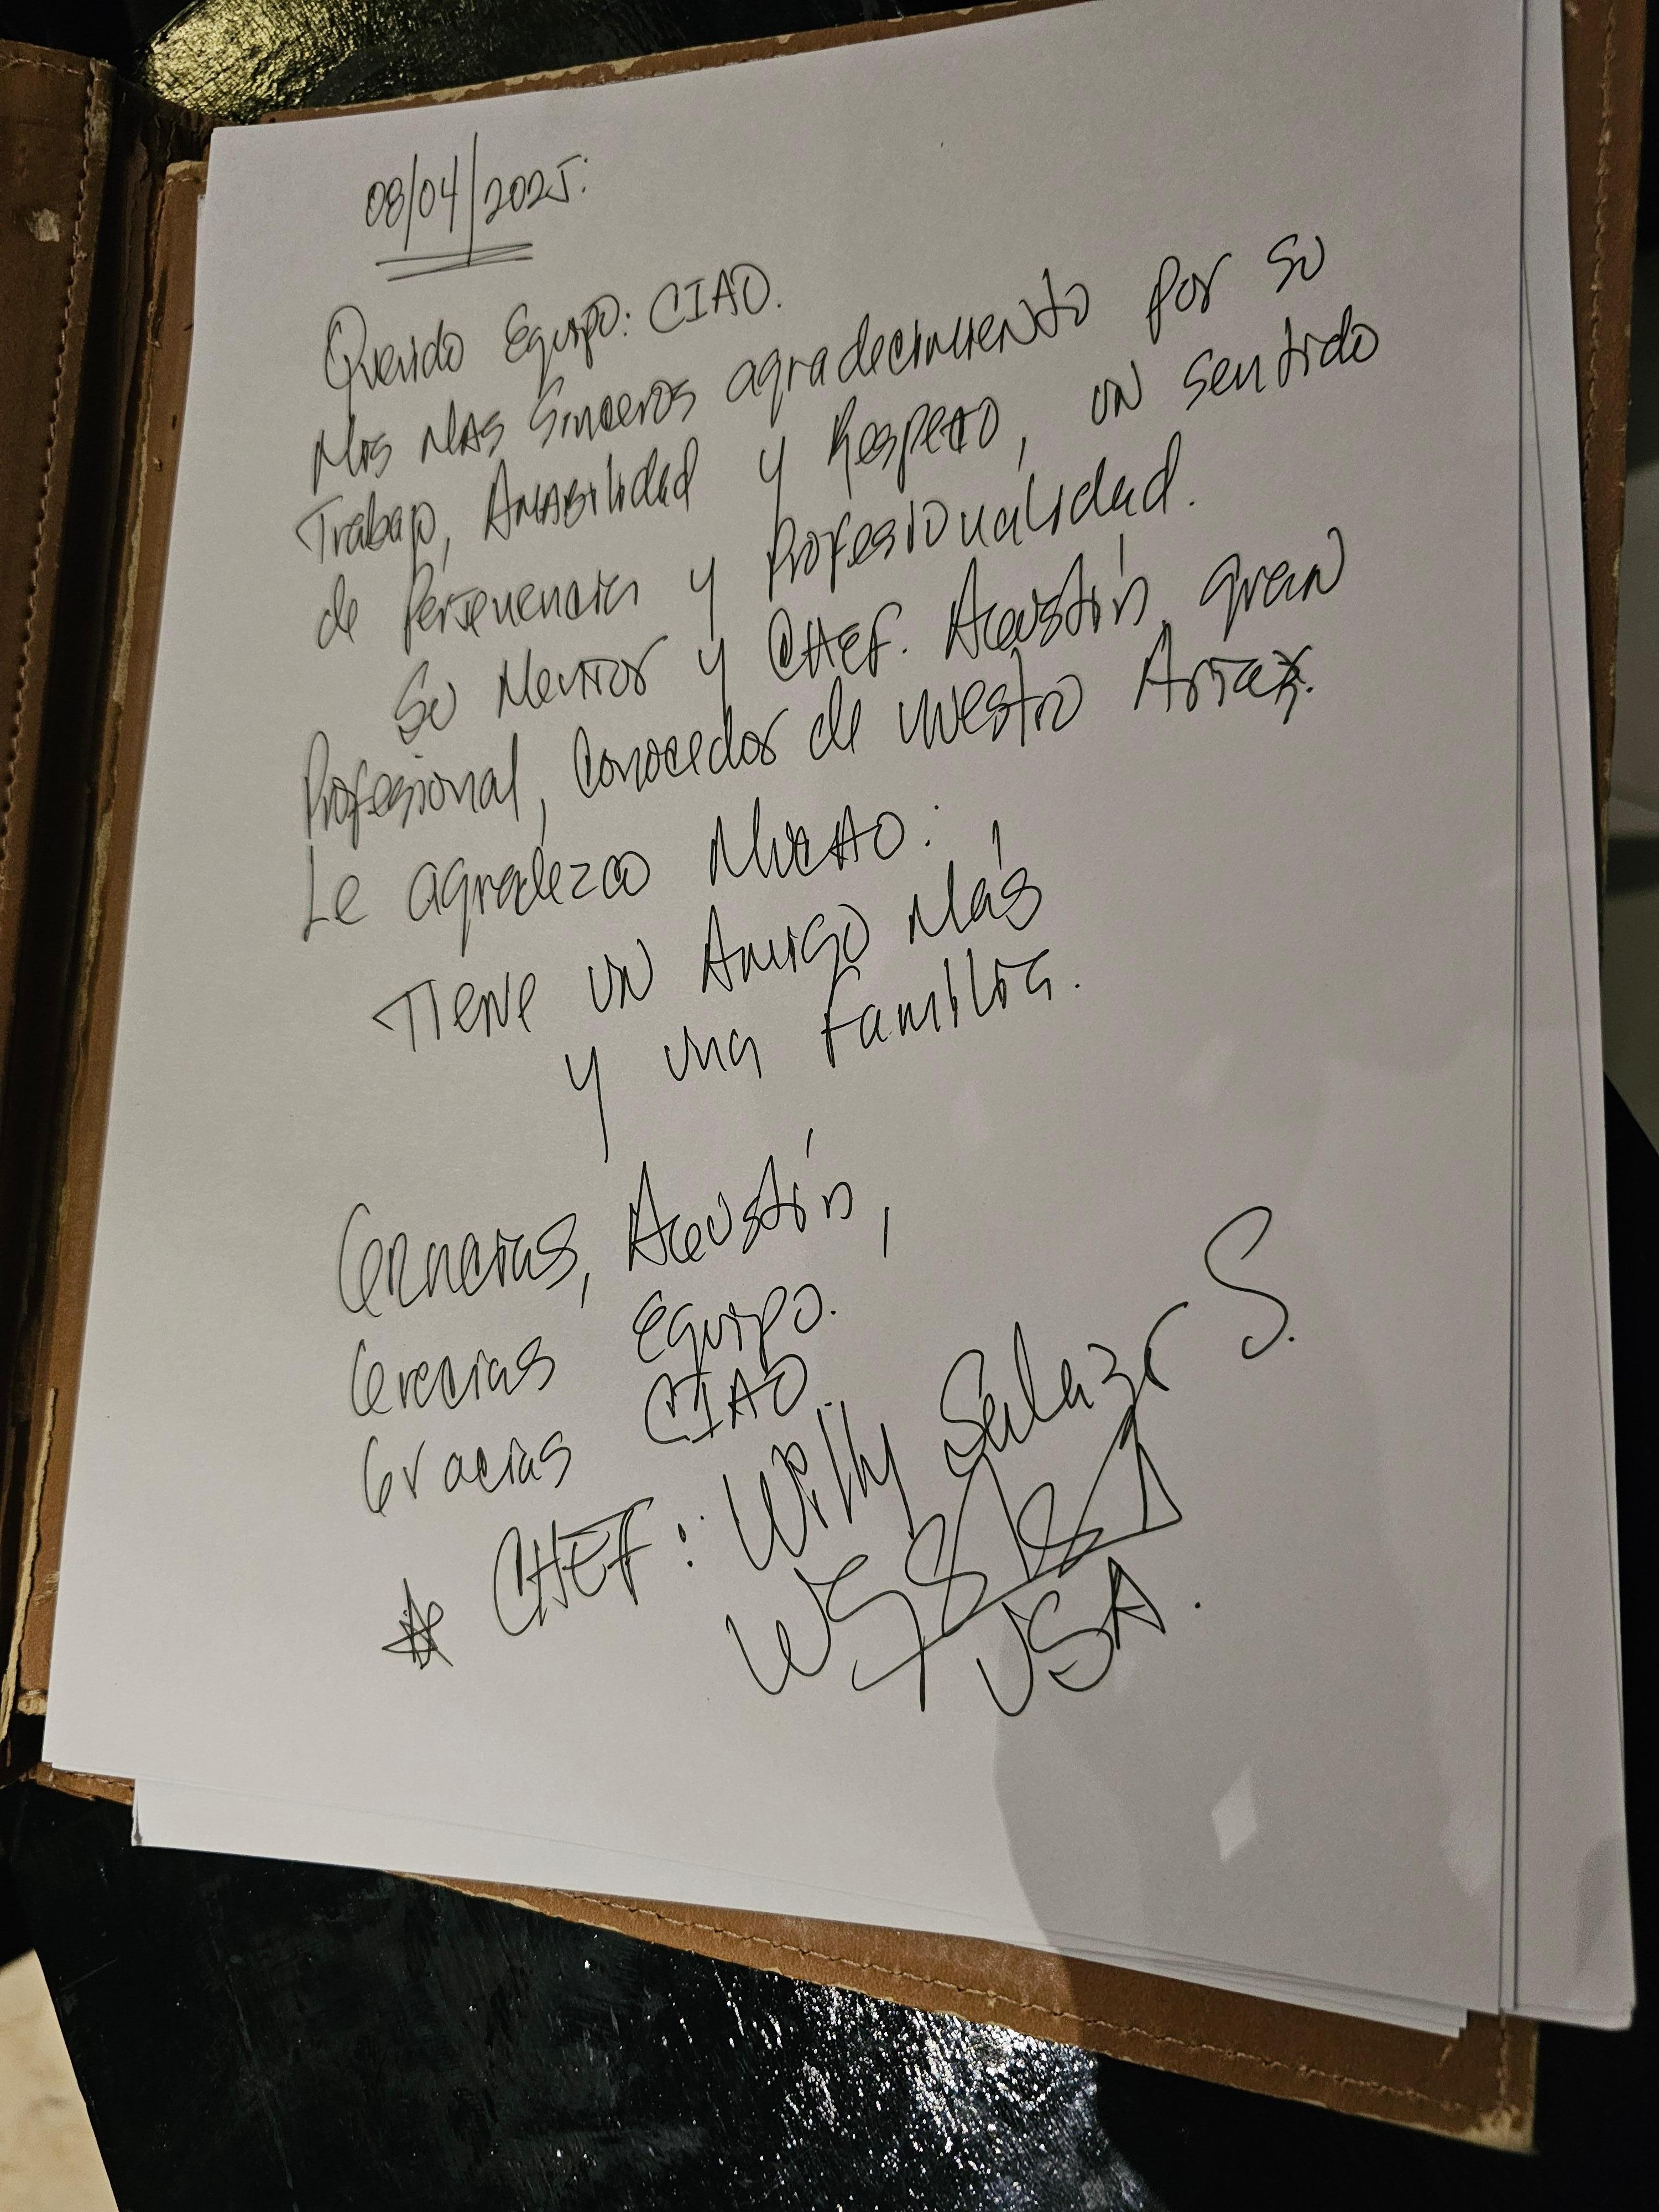 08/04/2025.
Querido Equipo: CIAO.
Mis MAS Sinceros agradecimiento por su
Trabajo, AMABilidad y Respeto, un sentido
de Persevencia y Profesionalidad.
Su Mentor y CHEF. AGUSTín gran
Profesional, Conocedor de nuestro
Le agradezco MUCHO:
Tiene un Amigo Más
y una Familia.
Gracias, AGUSTín,
Gracias Equipo.
Gracias CIAO
CHEF: Willy Salazar S.
USA.